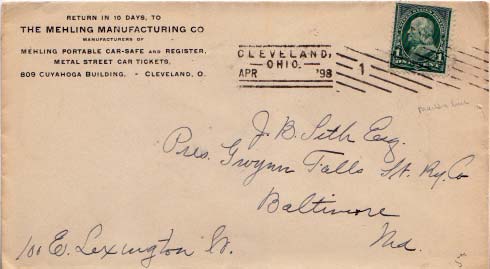 RETURN IN 10 DAYS, TO
THE MEHLING MANUFACTURING CO
MANUFACTURERS OF
MEHLING PORTABLE CAR-SAFE AND REGISTER,
METAL STREET CAR TICKETS,
809 CUYAHOGA BUILDING. - CLEVELAND, O.
CLEVELAND,
OHIO.
APR '98
1
1 1
J. B. Seth Esq.
Pres. Gwynn Falls St. Ry. Co
Baltimore
Md.
100 E. Lexington St.
5